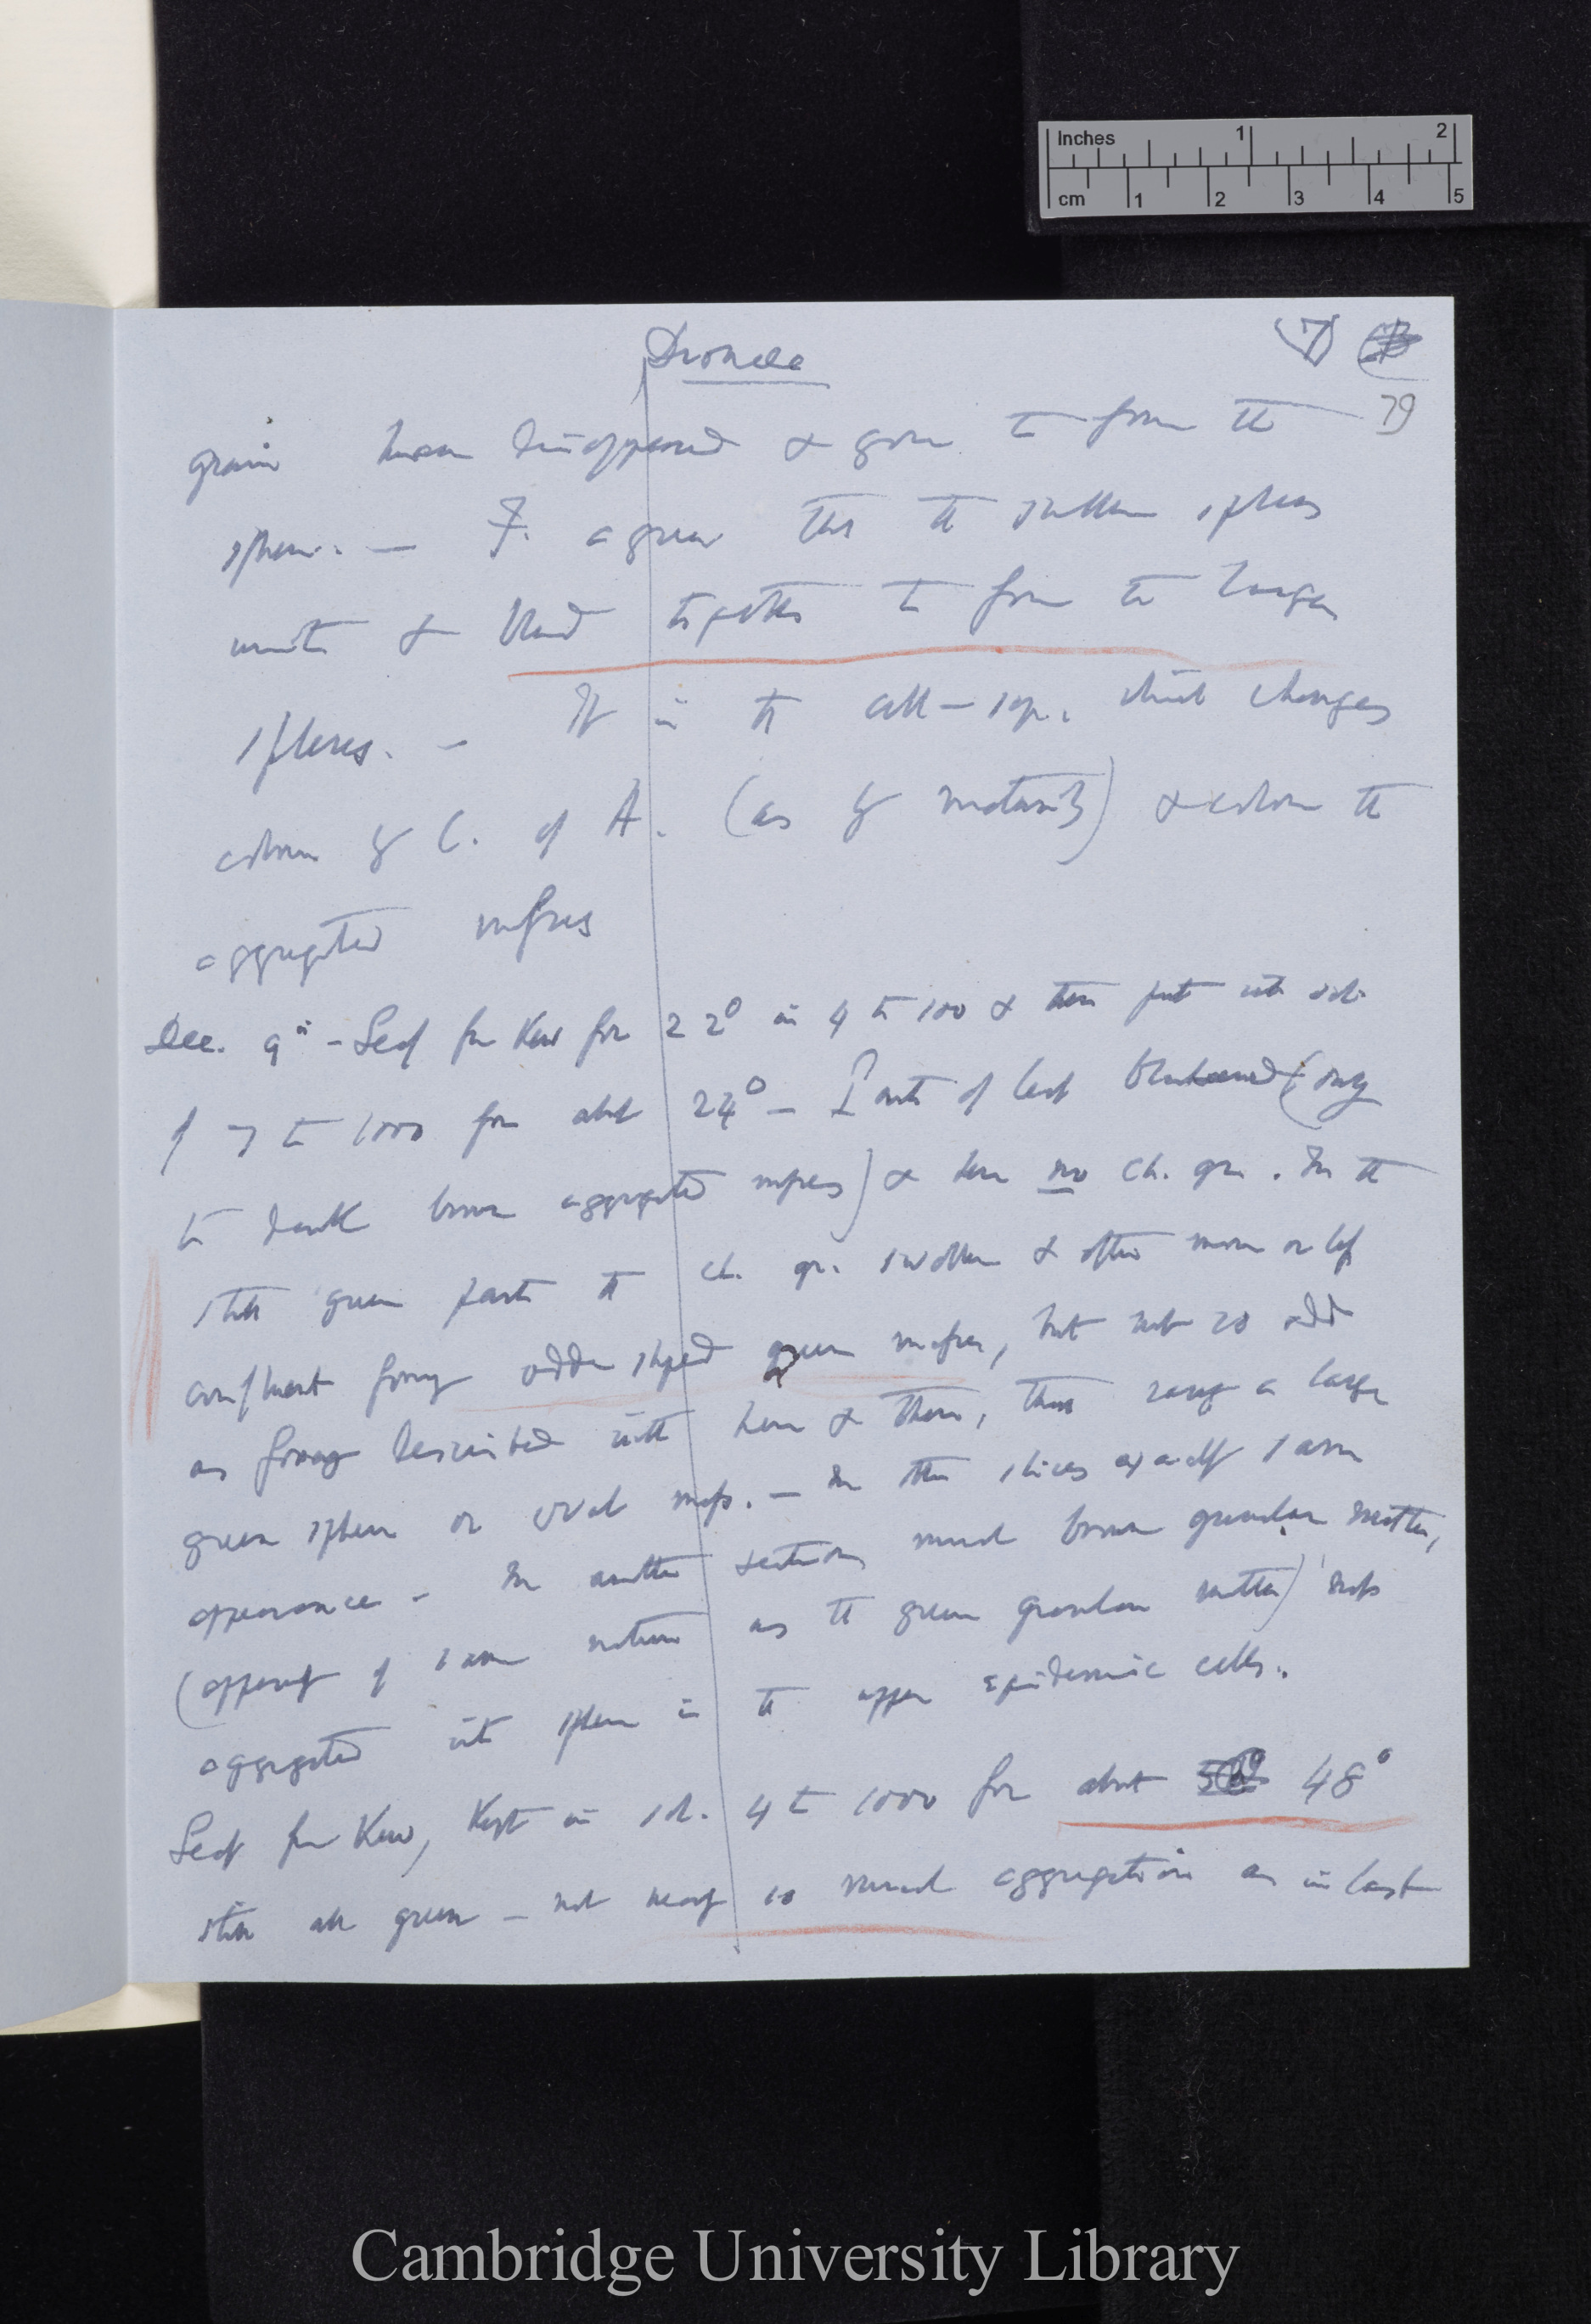 Inches 1 2
cm 1 2 3 4 5
Dionaea
(7)
79
grains have disappeared & gone to form the
spheres. — F. agrees that the smaller spheres
unite & blend together to form the larger
spheres. — It is the cell-sap. which changes
colour by C. of A. (as by maturity) & colour the
aggregated masses
Dec. 9th – Leaf from Kew for 22° in 4 to 1000 & then put into sol.
of 7 to 1000 for about 24° – Parts of leaf blackened (owing
to dark brown aggregated masses) & here no ch. gr. In the
still green parts the ch. gr. swollen & often more or less
confluent forming oddly shaped green masses, but not so odd
as formerly described with here & there, there a large
green sphere or oval mass. — In other slices exactly same
appearance – In another section much brown granular matter,
(apparently of same nature as the green granular matter) not
aggregated into spheres in the upper epidermic cells.
Leaf from Kew, kept in sol. 4 to 1000 for about 48°
still all green – not nearly so much aggregation as in last
Cambridge University Library